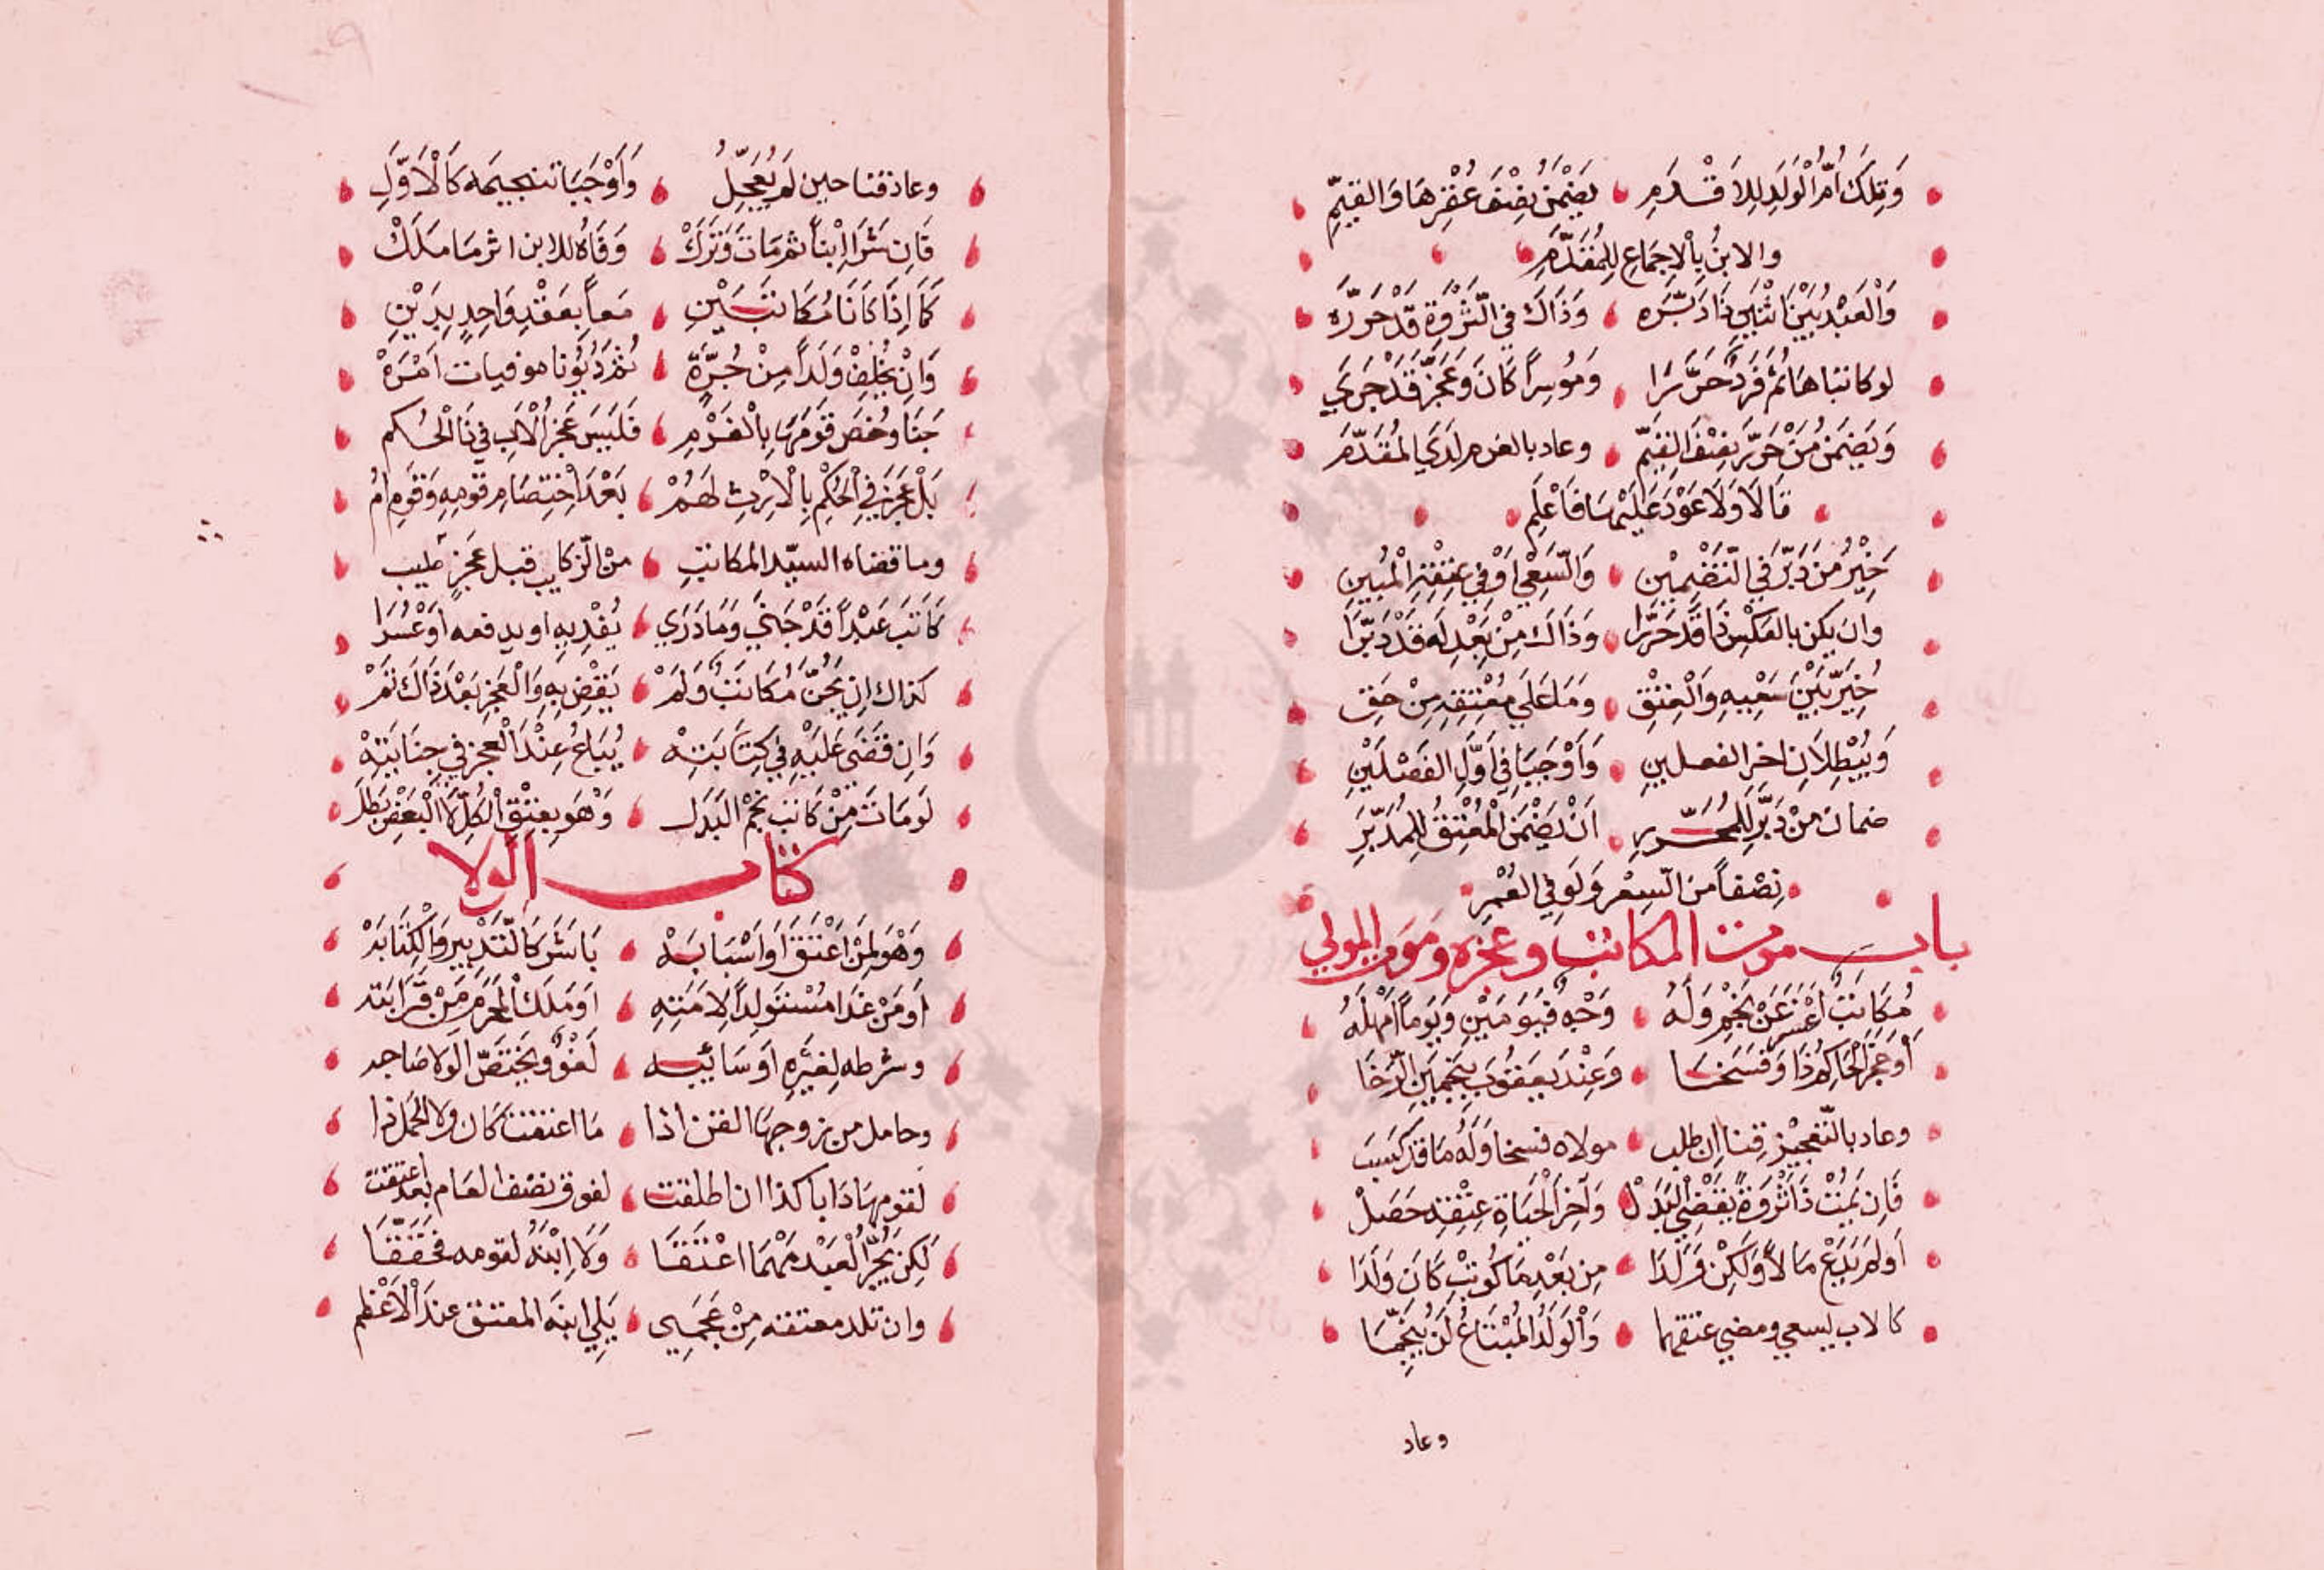 وَتِلكَ أُمُّ الْوَلَدِ لِلاَقْدَمِ يَضْمَنُ نِصْفَ عُقْرِهَا وَالقِيَمِ
والابنُ بِالاِجمَاعِ لِلمُقَدَّمِ
وَالْعَبْدُ بَيْنَ اثْنَيْنِ ذَا دَبَّرَه وَذَاكَ فِي الثَّرْوَةِ قَدْ حَرَّرَه
لو كاتباها ثُمَّ فَرْدٌ حَرَّرَا وَمُوسِراً كَانَ وَعَجْزٌ قَدْ جَرَي
وَيَضْمَنُ مَنْ حَرَّرَ نِصْفَ القِيَمِ وعاد بالغرم لَدَي المُقَدَّمِ
قَالَا وَلَا عَوْدَ عَلَيْهَا فَاعْلَمِ
خِيْرُ مَنْ دَبَّرَ فِي التَّضْمِيْنِ وَالسَّعْي اوْ فِي عِتْقِهِ الْمُبِينِ
وان يكن بالعكس ذَا قَدْ حَرَّرَا وَذَاكَ مِنْ بَعْدِ لَه قَدْ دَبَّرَا
خُيِّرَ بَيْنَ سَعْيِهِ وَالْعِتْقِ وَمَا عَلَي مُعْتِقِهِ مِنْ حَقِ
وَيُبْطِلَانِ اخر الفصلين وَأَوْجَبَا فِي أَوَّلِ الفَصْلَيْنِ
ضمان مَنْ دَبَّرَ لِلمُحَرِّرِ اَنْ يَضْمَنَ الْمُعْتِقُ لِلمُدَبِّرِ
نِصْفاً من السِعْرِ وَلَو فِي العُسْرِ
باب موت المكاتب وعجزه وموت المولي
مُكَاتَبٌ أَعْسَرَ عَنْ نَجْمٍ وَلَهُ وَجْهٌ فَيَوْمَيْنِ وَيَوْماً أَمْهِلَهُ
أَو عَجَّزَ الْحَاكِمُ ذَا وَفَسَخَا وَعِنْدَ يَعقُوبَ بِنَجْمَيْنِ الرَّخَا
وعاد بالتَّعجِيْزِ قِنا اِن طلب مولاه فسخا وَلَهُ مَا قَدْ كَسَبَ
فَاِن يَمُتْ ذَا ثَرْوَةٍ يُقْضَي الْبَدَلْ وَآخِرَ الْحَيَاةِ عِتْقِهِ حَصَلْ
اَو لَمْ يَدَعْ مَالاً وَلَكِنْ وَلَدَا مِن بَعْدِ مَا كُوتِبَ كَانَ وَلَدَا
كالاب يسعي ومضي عتقهما وَالْوَلَدُ المُبْتَاعُ لَنْ يُنَجَّمَا
وعاد
وعاد قنا حين لم يُعَجِّلُ وَأَوْجَبَا تنجيمه كَالْأَوَّلِ
فَاِن شَرَا اِبْناً ثم مَاتَ وَتَرَكْ وَفَاهُ للابن ارث مَا مَلَكْ
كَمَا اِذَا كَانَا مُكَاتَبَيْنِ مَعاً بِعَقْدٍ وَاحِدٍ بِدَيْنِ
وَاِنْ يُخَلِّفْ وَلَداً مِنْ حُرَّةٍ ثُمَّ دُيُونا موفيات اَمْرَهْ
جَنَا وخُصَّ قَوْمَهَا بِالْغَرْمِ فَلَيْسَ عَجْزُ الْأَبِ فِي ذَا الْحُكم
بَلْ عَجْزَ فِي الْحُكْمِ بِالْاِرْثِ لَهُمْ بَعْدَ اخْتِصَامِ قَوْمِهِ وَقَوِمِ امُ
وما قضاه السيّد المكاتبِ مَنْ الزكاةِ قبل عَجْزٍ طيب
كَاتَبَ عَبْداً قَدْ جَنَي وَمَا دَرَي يُفْدِيهِ او يدفعه اَوْ عَسُرَا
كذاك اِن يَجْنِ مُكَاتَبٌ وَلَمْ يَقْضِ بِهِ وَالْعَجْزُ بَعْدَ ذَاكَ تَمْ
وَاِن قَضَي عَلَيْهِ فِي كِتَابَتِهْ يُبَاعُ عِنْدَ الْعجز فِي جِنَايَتِهْ
لَو مَاتَ مَنْ كَاتَبَ نَجْمُ البَدَل وَهْوَ بِعِتْقِ الْكُلِّ لَا الْبَعْضِ بَطَلَ
كتاب الولا
وَهْوَ لِمَنْ أَعْتَقَ اَوْ اَسْبَابَهْ بَاشَرَ كَالتَّدْبِيرِ وَالْكِتَابَهْ
اَو مَنْ غَدَا مُسْتَولِداً لِاَمَتِهِ اَو مَلَكَ الْمَحْرَمَ مِنْ قَرَابَته
وشرطه لِغَيْرِهِ اَو سَائِبَه لَغْوٌ وَيَخْتَصُّ الولا صَاحبه
وحامل من زوجها القن اذا مَا اعتقت كَان ولا الحَمل ذا
لقومها دَابا كذا ان اطلقت لفوق نصف العام بعد اعتقت
لَكِن يَجُرُّ الْعَبْدُ مَهْمَا اعْتَقَا وَلَا اِبْنِهُ لقومه فَحُقِّقَا
وان تلد معتقة مِنْ عَجَمِي يَلِي ابنَه المعتق عند الْأَعْظَم